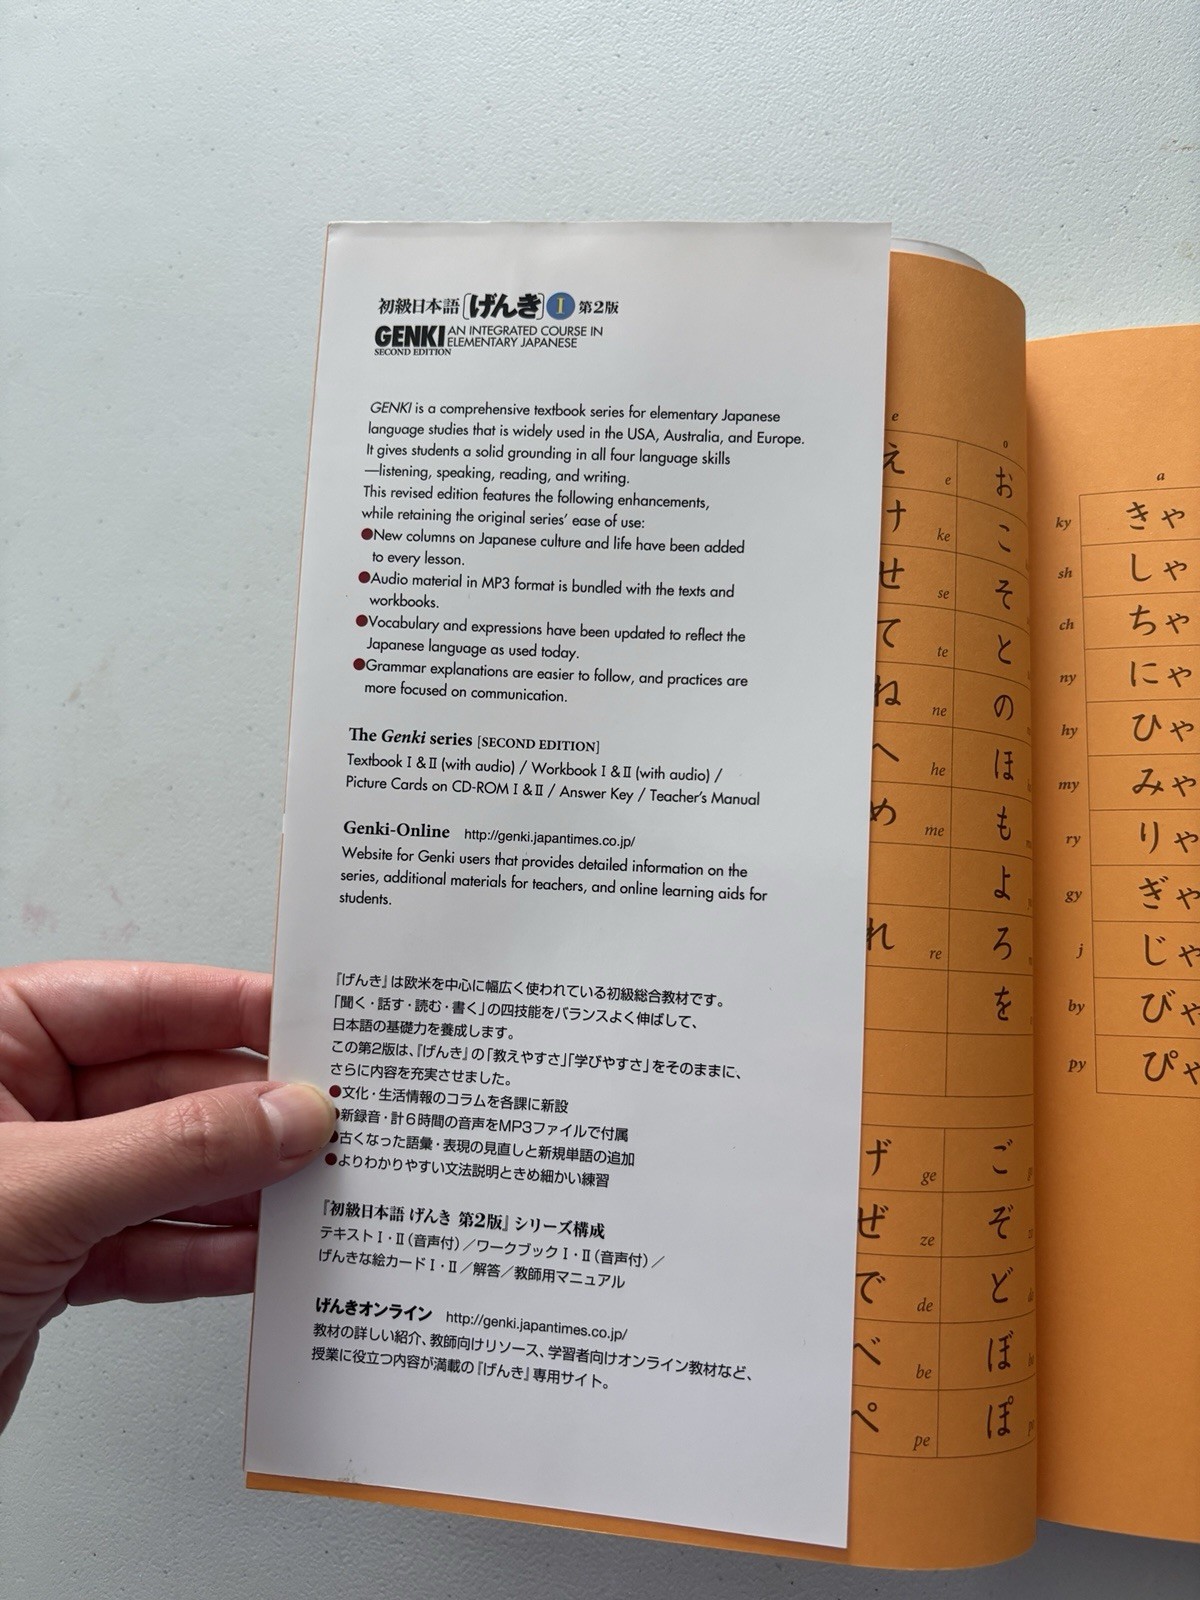 初級日本語[げんき] I 第2版
GENKI AN INTEGRATED COURSE IN
ELEMENTARY JAPANESE
SECOND EDITION
GENKI is a comprehensive textbook series for elementary Japanese
language studies that is widely used in the USA, Australia, and Europe.
It gives students a solid grounding in all four language skills
—listening, speaking, reading, and writing.
This revised edition features the following enhancements,
while retaining the original series' ease of use:
●New columns on Japanese culture and life have been added
to every lesson.
●Audio material in MP3 format is bundled with the texts and
workbooks.
●Vocabulary and expressions have been updated to reflect the
Japanese language as used today.
●Grammar explanations are easier to follow, and practices are
more focused on communication.
The Genki series [SECOND EDITION]
Textbook I & II (with audio) / Workbook I & II (with audio) /
Picture Cards on CD-ROM I & II / Answer Key / Teacher's Manual
Genki-Online http://genki.japantimes.co.jp/
Website for Genki users that provides detailed information on the
series, additional materials for teachers, and online learning aids for
students.
『げんき』は欧米を中心に幅広く使われている初級総合教材です。
「聞く・話す・読む・書く」の四技能をバランスよく伸ばして、
日本語の基礎力を養成します。
この第2版は、『げんき』の「教えやすさ」「学びやすさ」をそのままに、
さらに内容を充実させました。
●文化・生活情報のコラムを各課に新設
●新録音・計6時間の音声をMP3ファイルで付属
●古くなった語彙・表現の見直しと新規単語の追加
●よりわかりやすい文法説明ときめ細かい練習
『初級日本語 げんき 第2版』シリーズ構成
テキストI・II(音声付)/ワークブックI・II(音声付)/
げんきな絵カードI・II/解答/教師用マニュアル
げんきオンライン http://genki.japantimes.co.jp/
教材の詳しい紹介、教師向けリソース、学習者向けオンライン教材など、
授業に役立つ内容が満載の『げんき』専用サイト。
e o
え e お
け ke こ
せ se そ
て te と
ね ne の
へ he ほ
め me も
よ
れ re ろ
を
げ ge ご
ぜ ze ぞ
で de ど
べ be ぼ
ぺ pe ぽ
a
ky きゃ
sh しゃ
ch ちゃ
ny にゃ
hy ひゃ
my みゃ
ry りゃ
gy ぎゃ
j じゃ
by びゃ
py ぴゃ